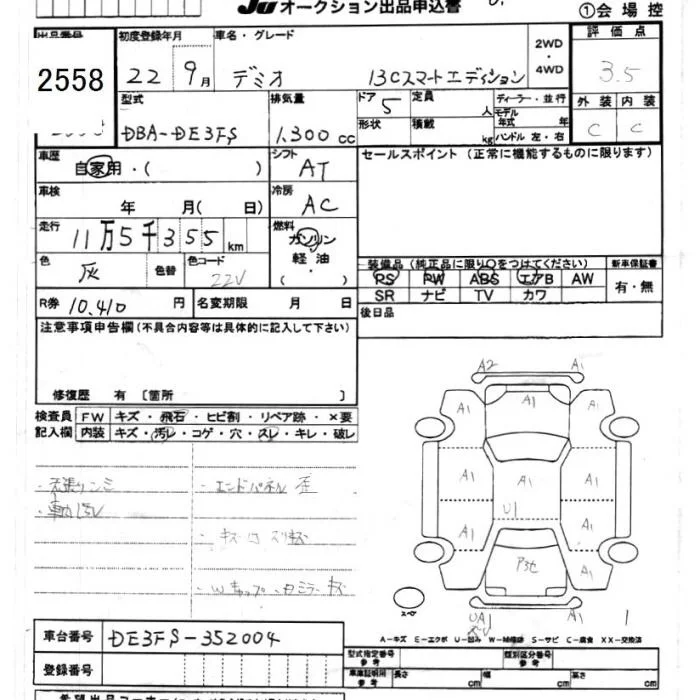 JU オークション出品申込書
①会場控
出品番号 初度登録年月 車名・グレード 評価点
2558 22 9月 デミオ 13Cスマートエディション 2WD ・ 4WD 3.5
型式 排気量 ドア 定員 ディーラー・並行 外装 内装
DBA-DE3FS 1.300 cc 5 人 モデル年式 年 C C
形状 積載 kg ハンドル 左・右
車歴 自家用・( ) シフト AT セールスポイント (正常に機能するものに限ります)
車検 年 月( 日) 冷房 AC
走行 11万5千355 km 燃料 ガソリン 軽・油 ( )
色 灰 色替 色コード 22V
装備品 (純正品に限り○をつけてください) 新車保証書
RS PW ABS エアB AW 有・無
SR ナビ TV カワ
R券 10,410 円 名変期限 月 日 後日品
注意事項申告欄 (不具合内容等は具体的に記入して下さい)
修復歴 有 〔箇所 〕
検査員 FW キズ・飛石・ヒビ割・リペア跡・×要
記入欄 内装 キズ・汚レ・コゲ・穴・スレ・キレ・破レ
・エンドパネル 歪
A2 A1
A1 A1 A1
A1 A1 A1
U1
A1 A1
A1 A1
スペ
A1
A-キズ E-エクボ U-凹み W-補修跡 S-サビ C-腐食 XX-交換済
車台番号 DE3FS-352004
登録番号
型式指定番号 参考 類別区分番号 参考
車庫証明用 参考 長さ cm 幅 cm 高さ cm